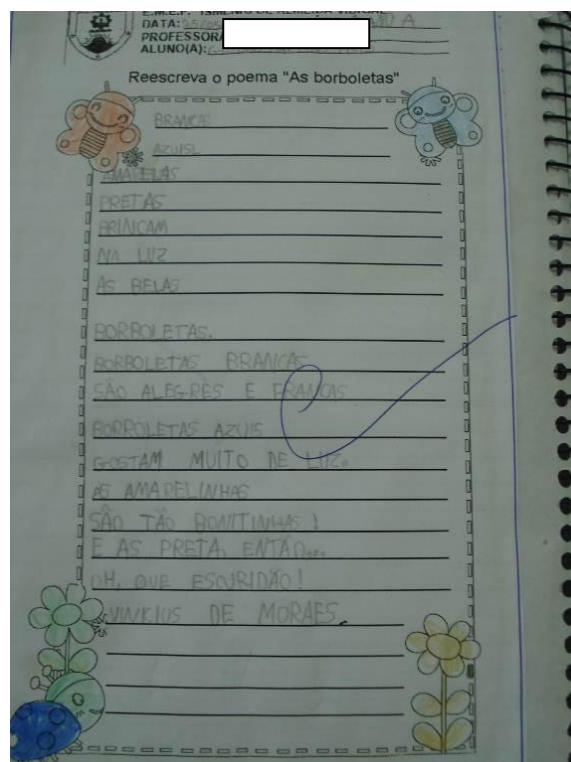 E.M.E.F. ISMÊNIO DE ALMEIDA VIDIGAL
DATA: 25/05 A
PROFESSORA
ALUNO(A):
Reescreva o poema "As borboletas"
BRANCAS
AZUISL
AMARELAS
PRETAS
BRINCAM
NA LUZ
AS BELAS
BORBOLETAS.
BORBOLETAS BRANCAS
SÃO ALEGRES E FRANCAS
BORBOLETAS AZUIS
GOSTAM MUITO DE LUZ.
AS AMARELINHAS
SÃO TÃO BONITINHAS!
E AS PRETA, ENTÃO...
OH, QUE ESCURIDÃO!
VINICIUS DE MORAES.